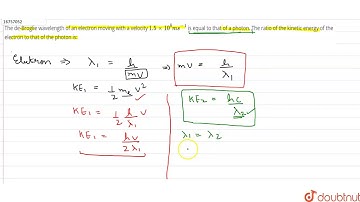 16757052
The de-Broglie wavelength of an electron moving with a velocity 1.5 × 10⁸ ms⁻¹ is equal to that of a photon. The ratio of the kinetic energy of the
electron to that of the photon is:
Elutron ⇒ λ₁ = h/mV ⇒ mV = h/λ₁
KE₁ = 1/2 mₑ V²
KE₂ = hc/λ₂
KE₁ = 1/2 h/λ₁ V
λ₁ = λ₂
KE₁ = hV/2λ₁
doubtnut